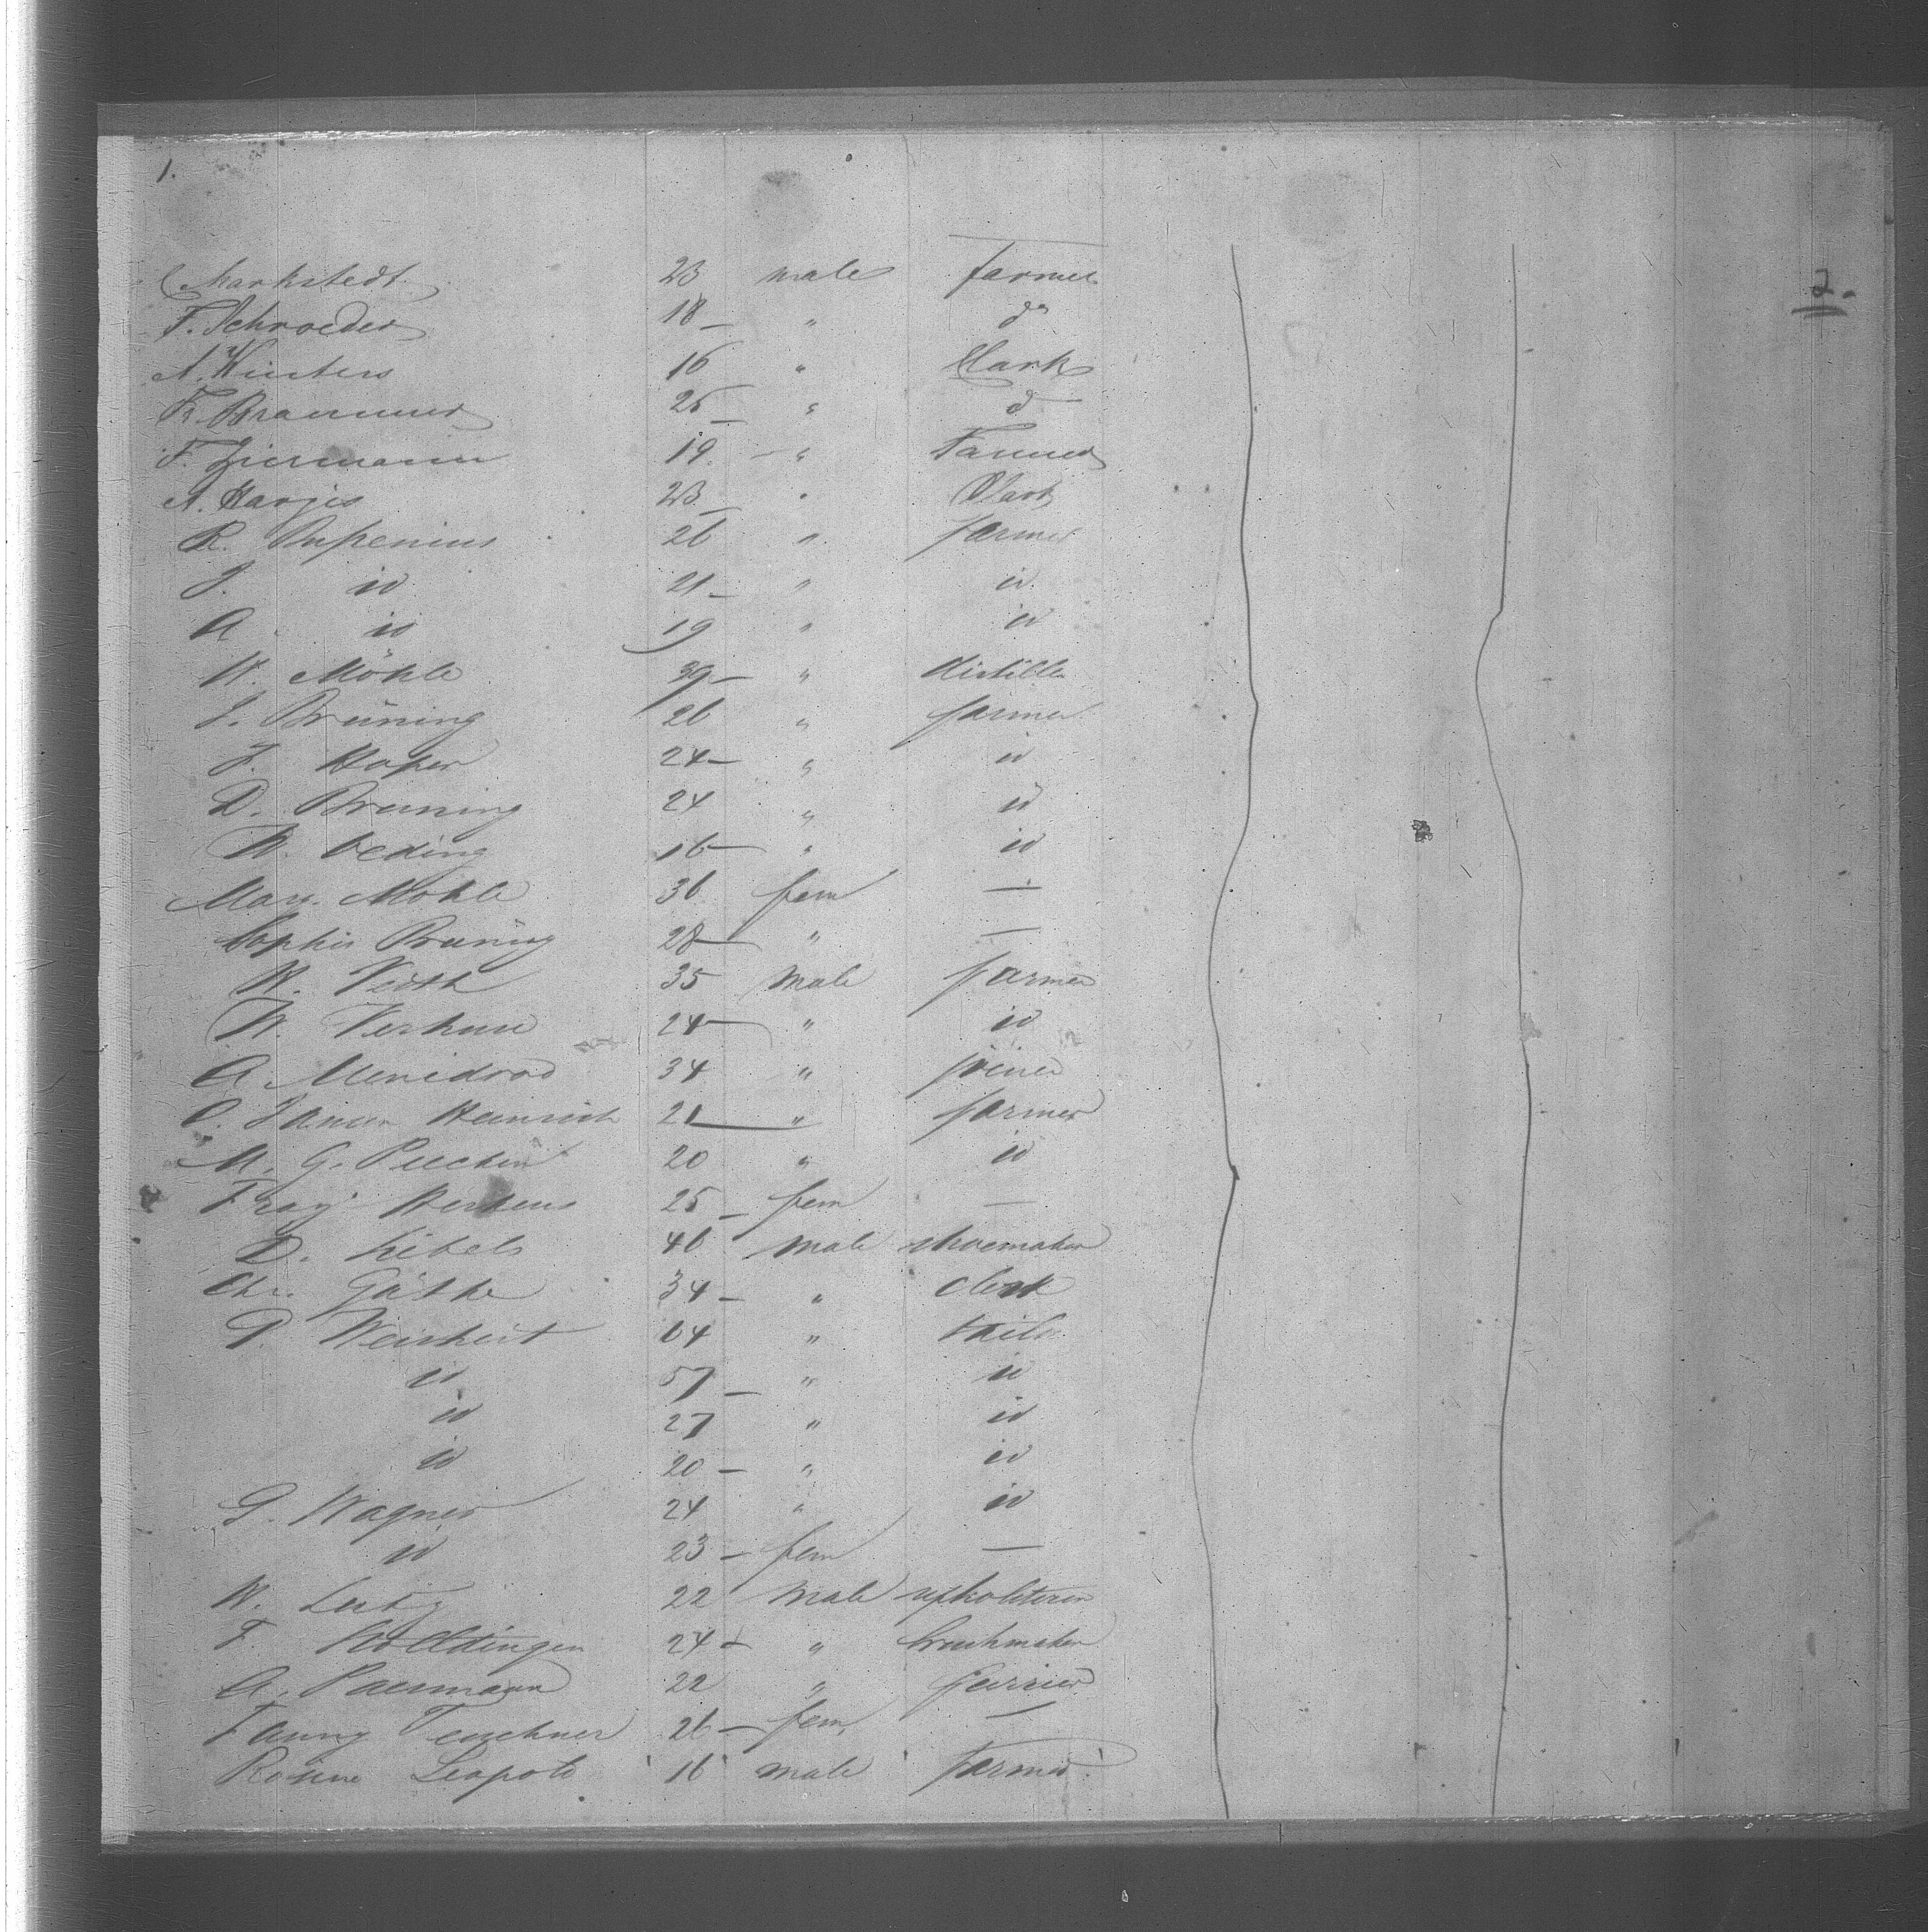 1.
2.
Markstedt 23 male farmer
F. Schroeder 18 " do
A. Winters 16 " Clark
Fr. Brammer 25 " do
F. Ziermann 19 " Farmer
A. Harjes 23 " Clark
R. Papenius 26 " farmer
J. id 21 " id
A. id 19 " id
W. Möhle 39 " distiller
J. Brüning 26 " farmer
J. Hoper 24 " id
D. Bruning 24 " id
W. Oeding 16 " id
Mary. Mohle 36 fem —
Sophie Bruning 28 " —
W. Veith 35 male farmer
W. 24 " id
A. 34 " joiner
Heinrich 21 " farmer
M. G. 20 " id
25 fem —
D. Libels 46 male shoemaker
Chr. Göthe 34 " clerk
P. Weishert 64 " tailor
id 57 " id
id 27 " id
id 20 " id
G. Wagner 24 " id
id 23 fem —
W. 22 male upholsterer
F. 24 " brushmaker
A. Paermann 22 " furrier
Fanny Teuchner 26 fem. —
Rosine Leopold 16 male farmer